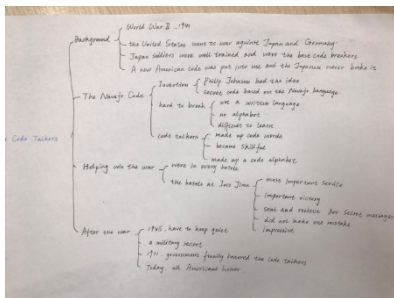 World War II, 1941
Background
the United States went to war against Japan and Germany
Japan soldiers were well trained and were the best code breakers
A new American code was put into use and the Japanese never broke it
Invention
Philip Johnson had the idea
secret code based on the Navajo language
The Navajo Code
hard to break
not a written language
no alphabet
difficult to learn
Code Talkers
code talkers
made up code words
became skillful
made up a code alphabet
Helping win the war
were in every battle
the battle at Iwo Jima
most important service
important victory
sent and receive 800 secret messages
did not make one mistake
impressive
After the war
1945, have to keep quiet
a military secret
government finally honored the code talkers
Today all Americans honor